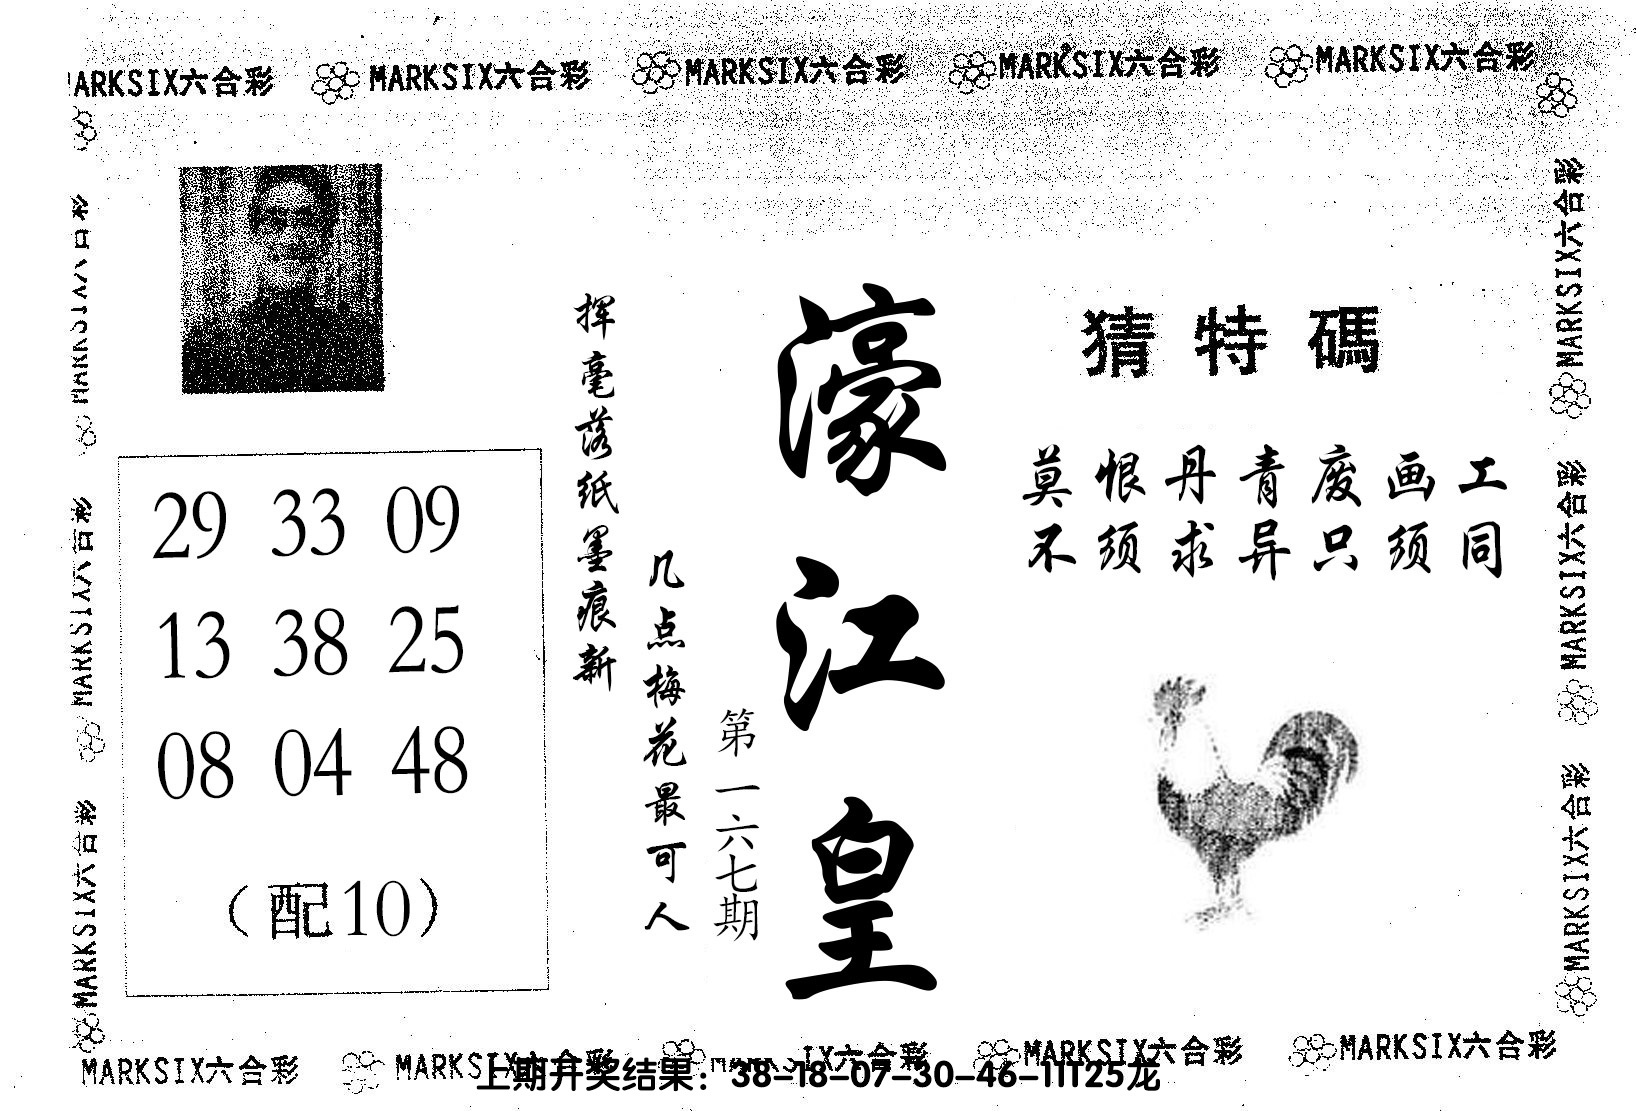 MARKSIX六合彩 MARKSIX六合彩 MARKSIX六合彩 MARKSIX六合彩 MARKSIX六合彩
MARKSIX六合彩
MARKSIX六合彩
MARKSIX六合彩
29 33 09
13 38 25
08 04 48
(配10)
挥毫落纸墨痕新
几点梅花最可人
第一六七期
濠江皇
猜特碼
莫恨丹青废画工
不须求异只须同
MARKSIX六合彩
MARKSIX六合彩
MARKSIX六合彩
MARKSIX六合彩 MARKSIX六合彩 MARKSIX六合彩 MARKSIX六合彩 MARKSIX六合彩
上期开奖结果：38-18-07-30-46-11T25龙